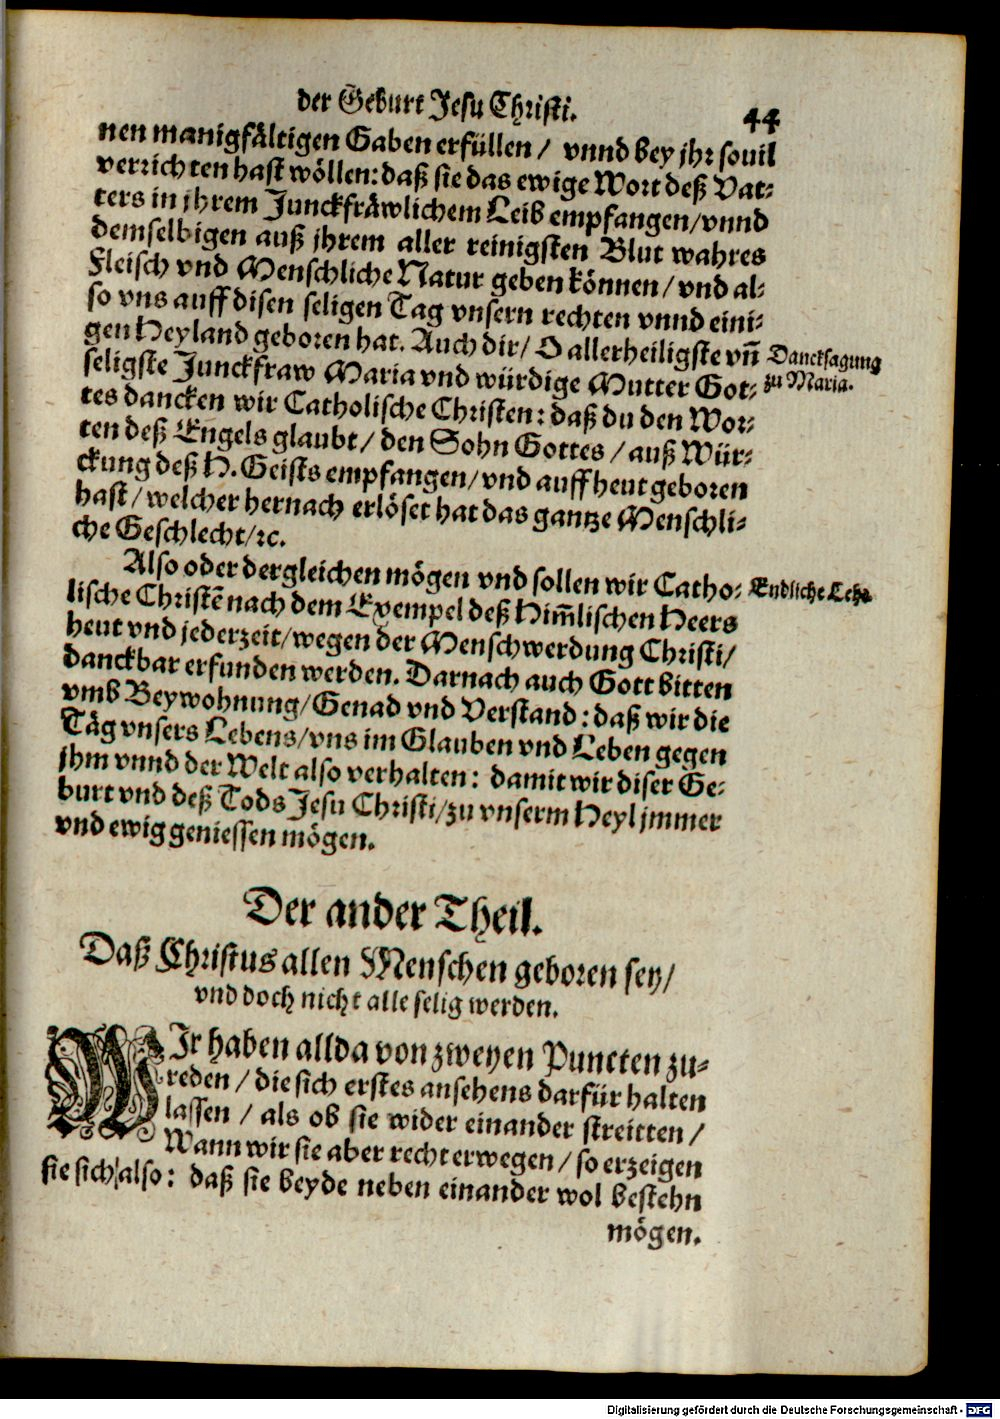 der Geburt Jesu Christi.
44
nen manigfältigen Gaben erfüllen / vnnd bey jhr souil
verrichten hast wöllen: daß sie das ewige Wort deß Vat-
ters in jhrem Junckfräwlichem Leib empfangen / vnnd
demselbigen auß jhrem aller reinigsten Blut wahres
Fleisch vnd Menschliche Natur geben können / vnd al-
so vns auff disen seligen Tag vnsern rechten vnnd eini-
gen Heyland geboren hat. Auch dir / O allerheiligste vn̄
seligste Junckfraw Maria vnd würdige Mutter Got-
tes dancken wir Catholische Christen: daß du den Wor-
ten deß Engels glaubt / den Sohn Gottes / auß Wür-
ckung deß H. Geists empfangen / vnd auff heut geboren
hast / welcher hernach erlöset hat das gantze Menschli-
che Geschlecht / ꝛc.
Dancksagung
zu Maria.
Also oder dergleichen mögen vnd sollen wir Catho-
lische Christē nach dem Exempel deß Him̄lischen Heers
heut vnd jederzeit / wegen der Menschwerdung Christi /
danckbar erfunden werden. Darnach auch Gott bitten
vmb Beywohnung / Genad vnd Verstand: daß wir die
Täg vnsers Lebens / vns im Glauben vnd Leben gegen
jhm vnnd der Welt also verhalten: damit wir diser Ge-
burt vnd deß Tods Jesu Christi / zu vnserm Heyl jmmer
vnd ewig geniessen mögen.
Endliche Lehr
Der ander Theil.
Daß Christus allen Menschen geboren sey /
vnd doch nicht alle selig werden.
WIr haben allda von zweyen Puncten zu-
reden / die sich erstes ansehens darfür halten
lassen / als ob sie wider einander streitten /
Wann wir sie aber recht erwegen / so erzeigen
sie sich also: daß sie beyde neben einander wol bestehn
mögen.
Digitalisierung gefördert durch die Deutsche Forschungsgemeinschaft - DFG